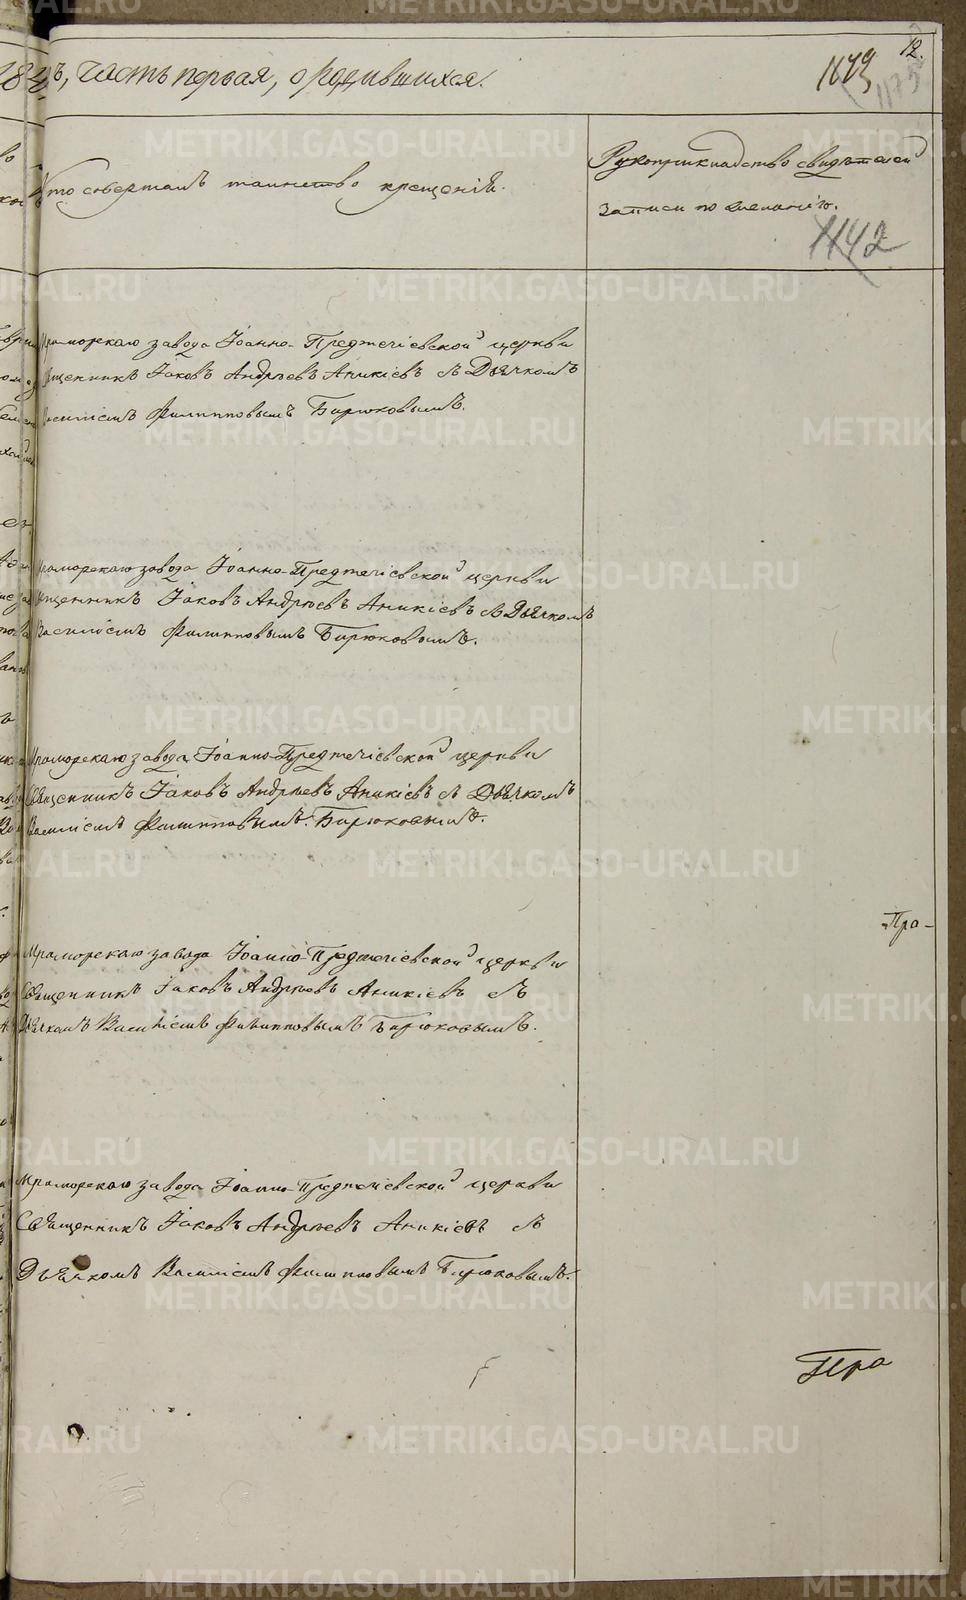 12.
184 ъ, часть первая, о родившихся. 1173
1175
Кто совершалъ таинство крещенія.
Рукоприкладство свидѣтелей
записи по желанію.
1142
Мраморскаго завода Іоанно-Предтечіевской церкви
Священникъ Іаковъ Андрѣевъ Аникіевъ съ Дьячкомъ
Василіемъ Филипповымъ Бирюковымъ.
Мраморскаго завода Іоанно-Предтечіевской церкви
Священникъ Іаковъ Андрѣевъ Аникіевъ съ Дьячкомъ
Василіемъ Филипповымъ Бирюковымъ.
Мраморскаго завода Іоанно-Предтечіевской церкви
Священникъ Іаковъ Андрѣевъ Аникіевъ съ Дьячкомъ
Василіемъ Филипповымъ Бирюковымъ.
Пра-
Мраморскаго завода Іоанно-Предтечіевской церкви
Священникъ Іаковъ Андрѣевъ Аникіевъ съ
Дьячкомъ Василіемъ Филипповымъ Бирюковымъ.
Мраморскаго завода Іоанно-Предтечіевской церкви
Священникъ Іаковъ Андрѣевъ Аникіевъ съ
Дьячкомъ Василіемъ Филипповымъ Бирюковымъ.
Пра
METRIKI.GASO-URAL.RU